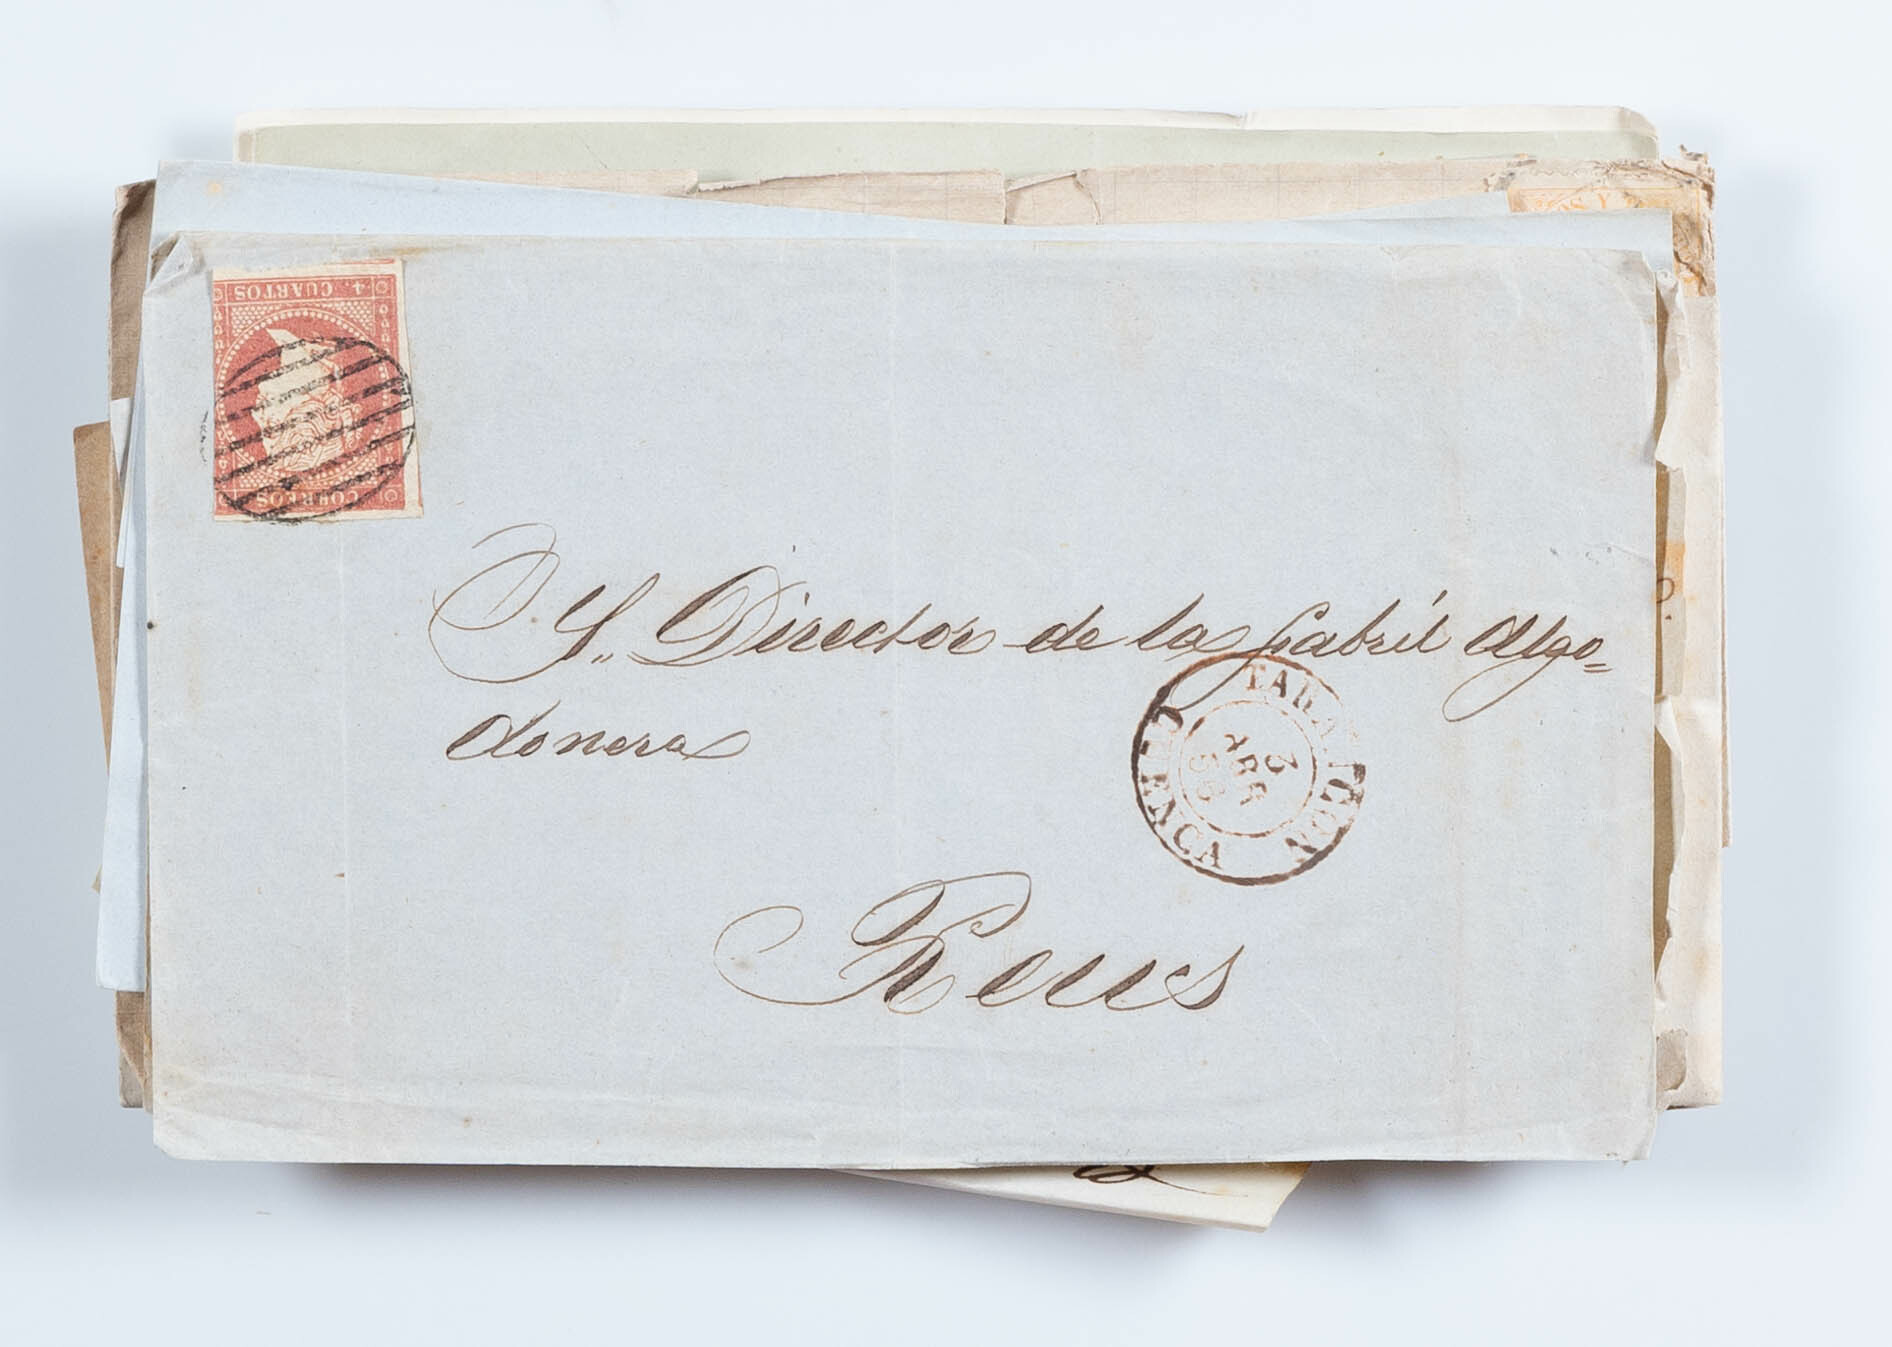 4 CUARTOS
CORREOS
S. Director de la fabril Algo=
donera
TARANCON
3
ABR
56
CUENCA
Reus
OS Y